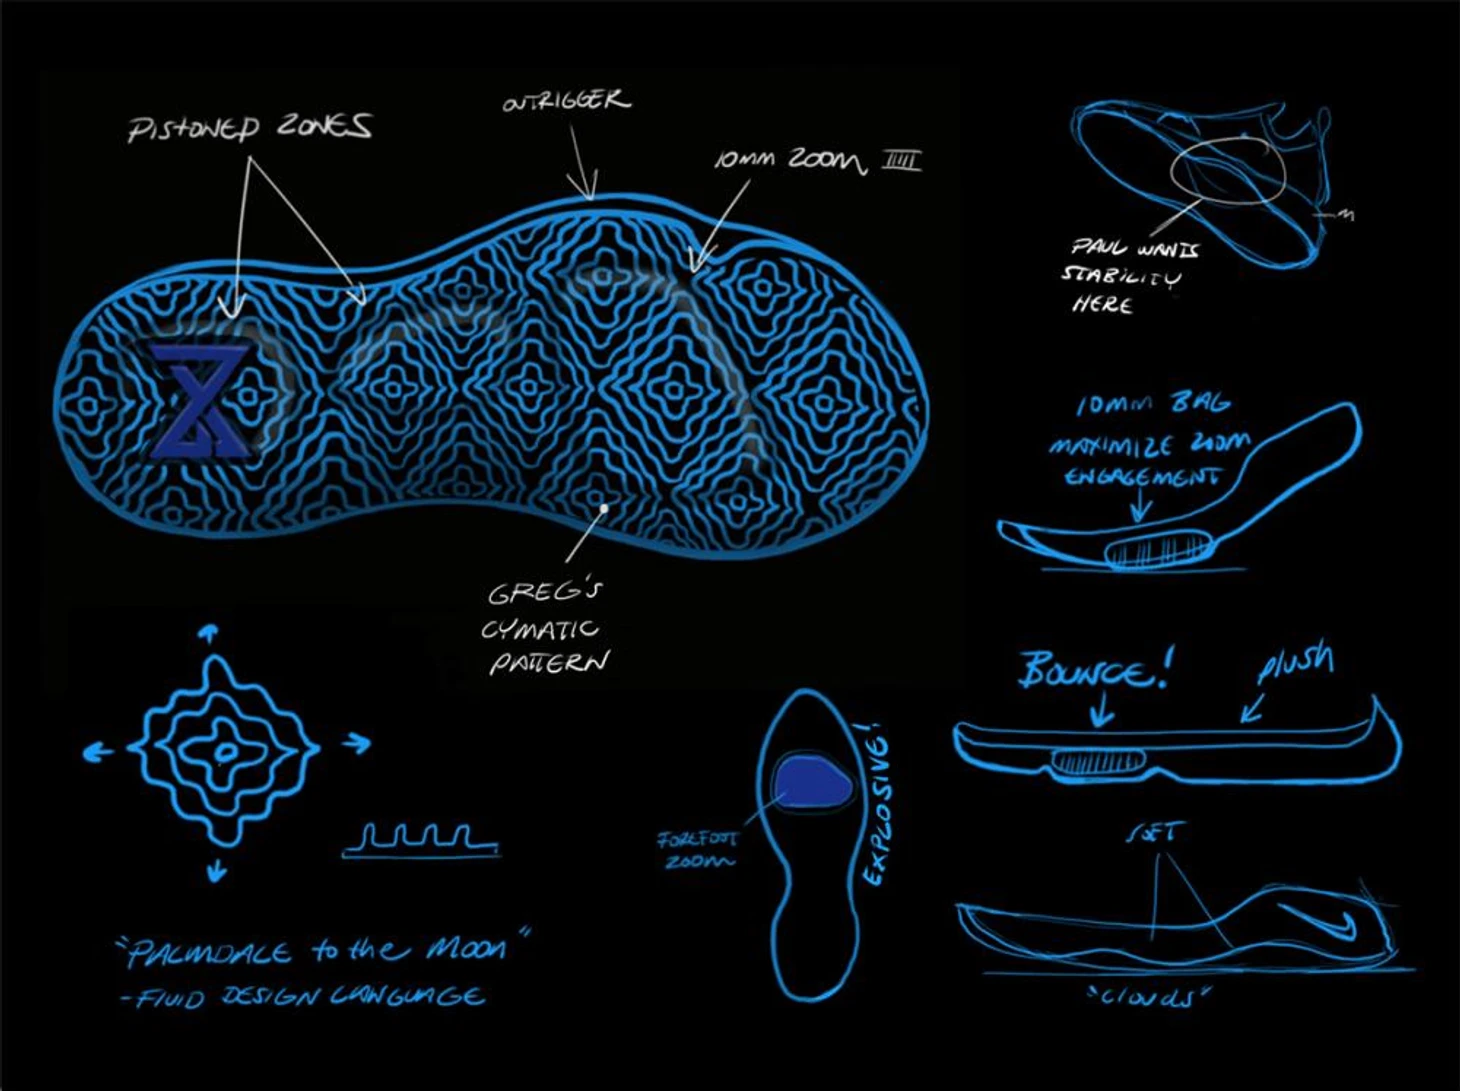 PISTONED ZONES
OUTRIGGER
10MM ZOOM
PAUL WANTS
STABILITY
HERE
10MM BAG
MAXIMIZE ZOOM
ENGAGEMENT
GREG'S
CYMATIC
PATTERN
BOUNCE!
plush
EXPLOSIVE!
FOREFOOT
ZOOM
SOFT
"PALMDALE to the MOON"
- FLUID DESIGN LANGUAGE
"Clouds"